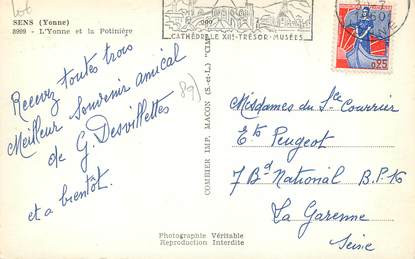 lot
SENS (Yonne)
8999 - L'Yonne et la Potinière
CATHÉDRALE XIIe-TRÉSOR-MUSÉES
1960
0,25
Recevez toutes trois
Meilleur Souvenir amical
de G. Desvillettes
et a bientôt.
89)
COMBIER IMP. MACON (S.-et-L.) "CIM"
Mesdames du Sce Courrier
Ets Peugeot
7 Bd National B.P.K
La Garenne
Seine
Photographie Véritable
Reproduction Interdite